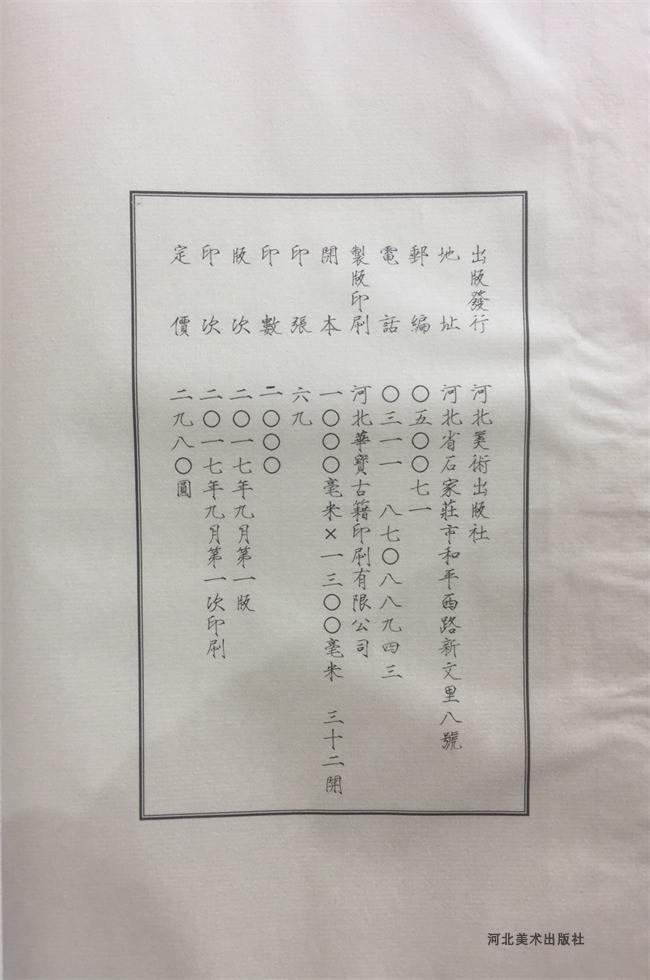 出版發行 河北美術出版社
地址 河北省石家莊市和平西路新文里八號
郵編 〇五〇〇七一
電話 〇三一一 八七〇八八九四三
製版印刷 河北華寶古籍印刷有限公司
開本 一〇〇〇毫米×一三〇〇毫米 三十二開
印張 六九
印數 二〇〇〇
版次 二〇一七年九月第一版
印次 二〇一七年九月第一次印刷
定價 二九八〇圓
河北美术出版社